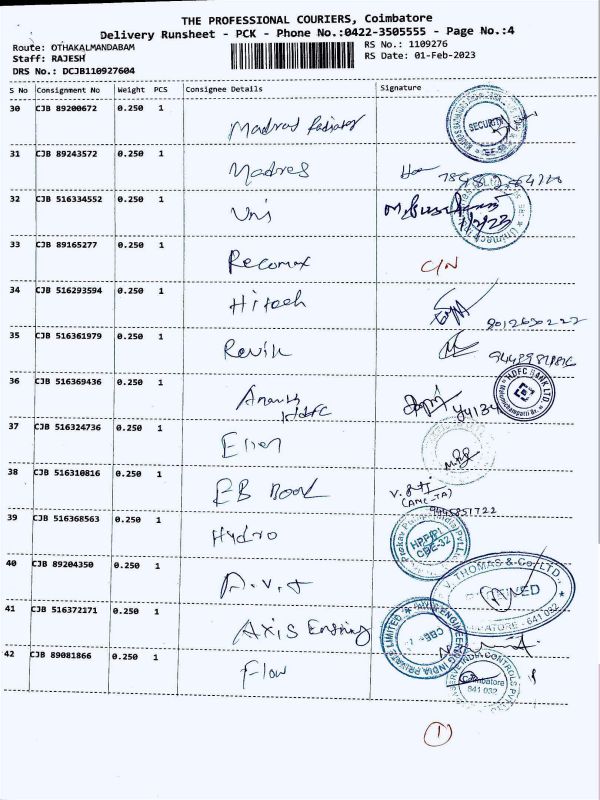 THE PROFESSIONAL COURIERS, Coimbatore
Delivery Runsheet - PCK - Phone No.:0422-3505555 - Page No.:4
Route: OTHAKALMANDABAM RS No.: 1109276
Staff: RAJESH RS Date: 01-Feb-2023
DRS No.: DCJB110927604
S No Consignment No Weight PCS Consignee Details Signature
30 CJB 89200672 0.250 1
Madras Radiator SECURITY
31 CJB 89243572 0.250 1
Madras
32 CJB 516334552 0.250 1
Uni 1/2/23
33 CJB 89165277 0.250 1
Recomax C/N
34 CJB 516293594 0.250 1
Hitech 8012630222
35 CJB 516361979 0.250 1
Revik
36 CJB 516369436 0.250 1 HDFC BANK LTD.
Anansh
HDFC
37 CJB 516324736 0.250 1
Ellen
38 CJB 516310816 0.250 1
EB Book
39 CJB 516368563 0.250 1 9445851722
Hydro HPPIPL
CBE-32
40 CJB 89204350 0.250 1 V. THOMAS & Co. LTD.
A.V.T
COIMBATORE - 641 032
41 CJB 516372171 0.250 1
Axis ENGINEERING INDIA PRIVATE LIMITED CBE
42 CJB 89081866 0.250 1
Flow Coimbatore
641 032
1